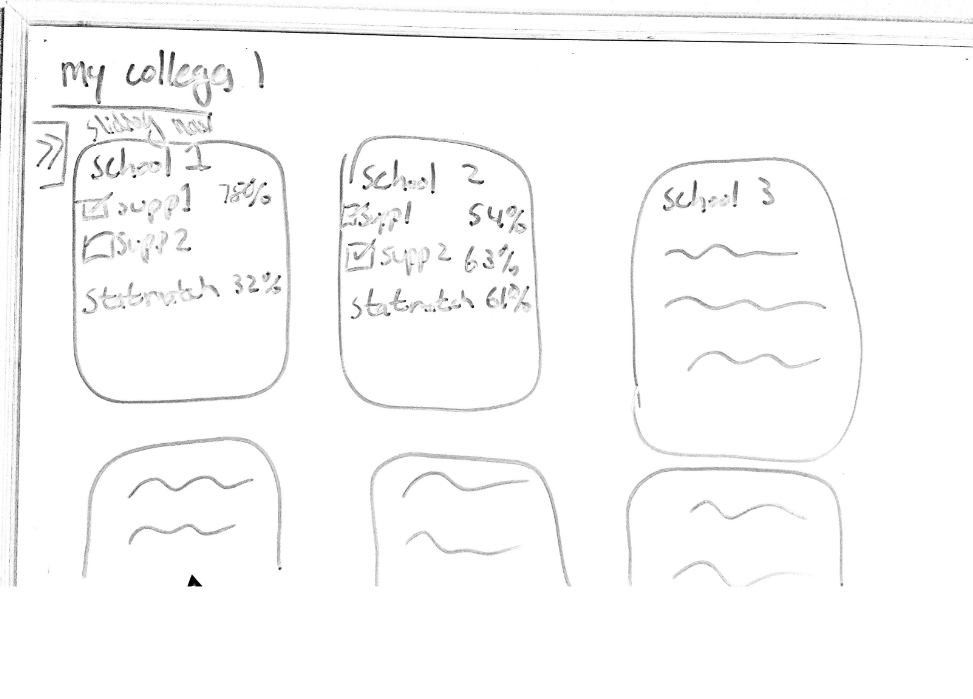 my colleges
>>
sliding nav
school 1
supp1 78%
supp2
statmatch 32%
school 2
supp1 54%
supp2 63%
statmatch 61%
school 3